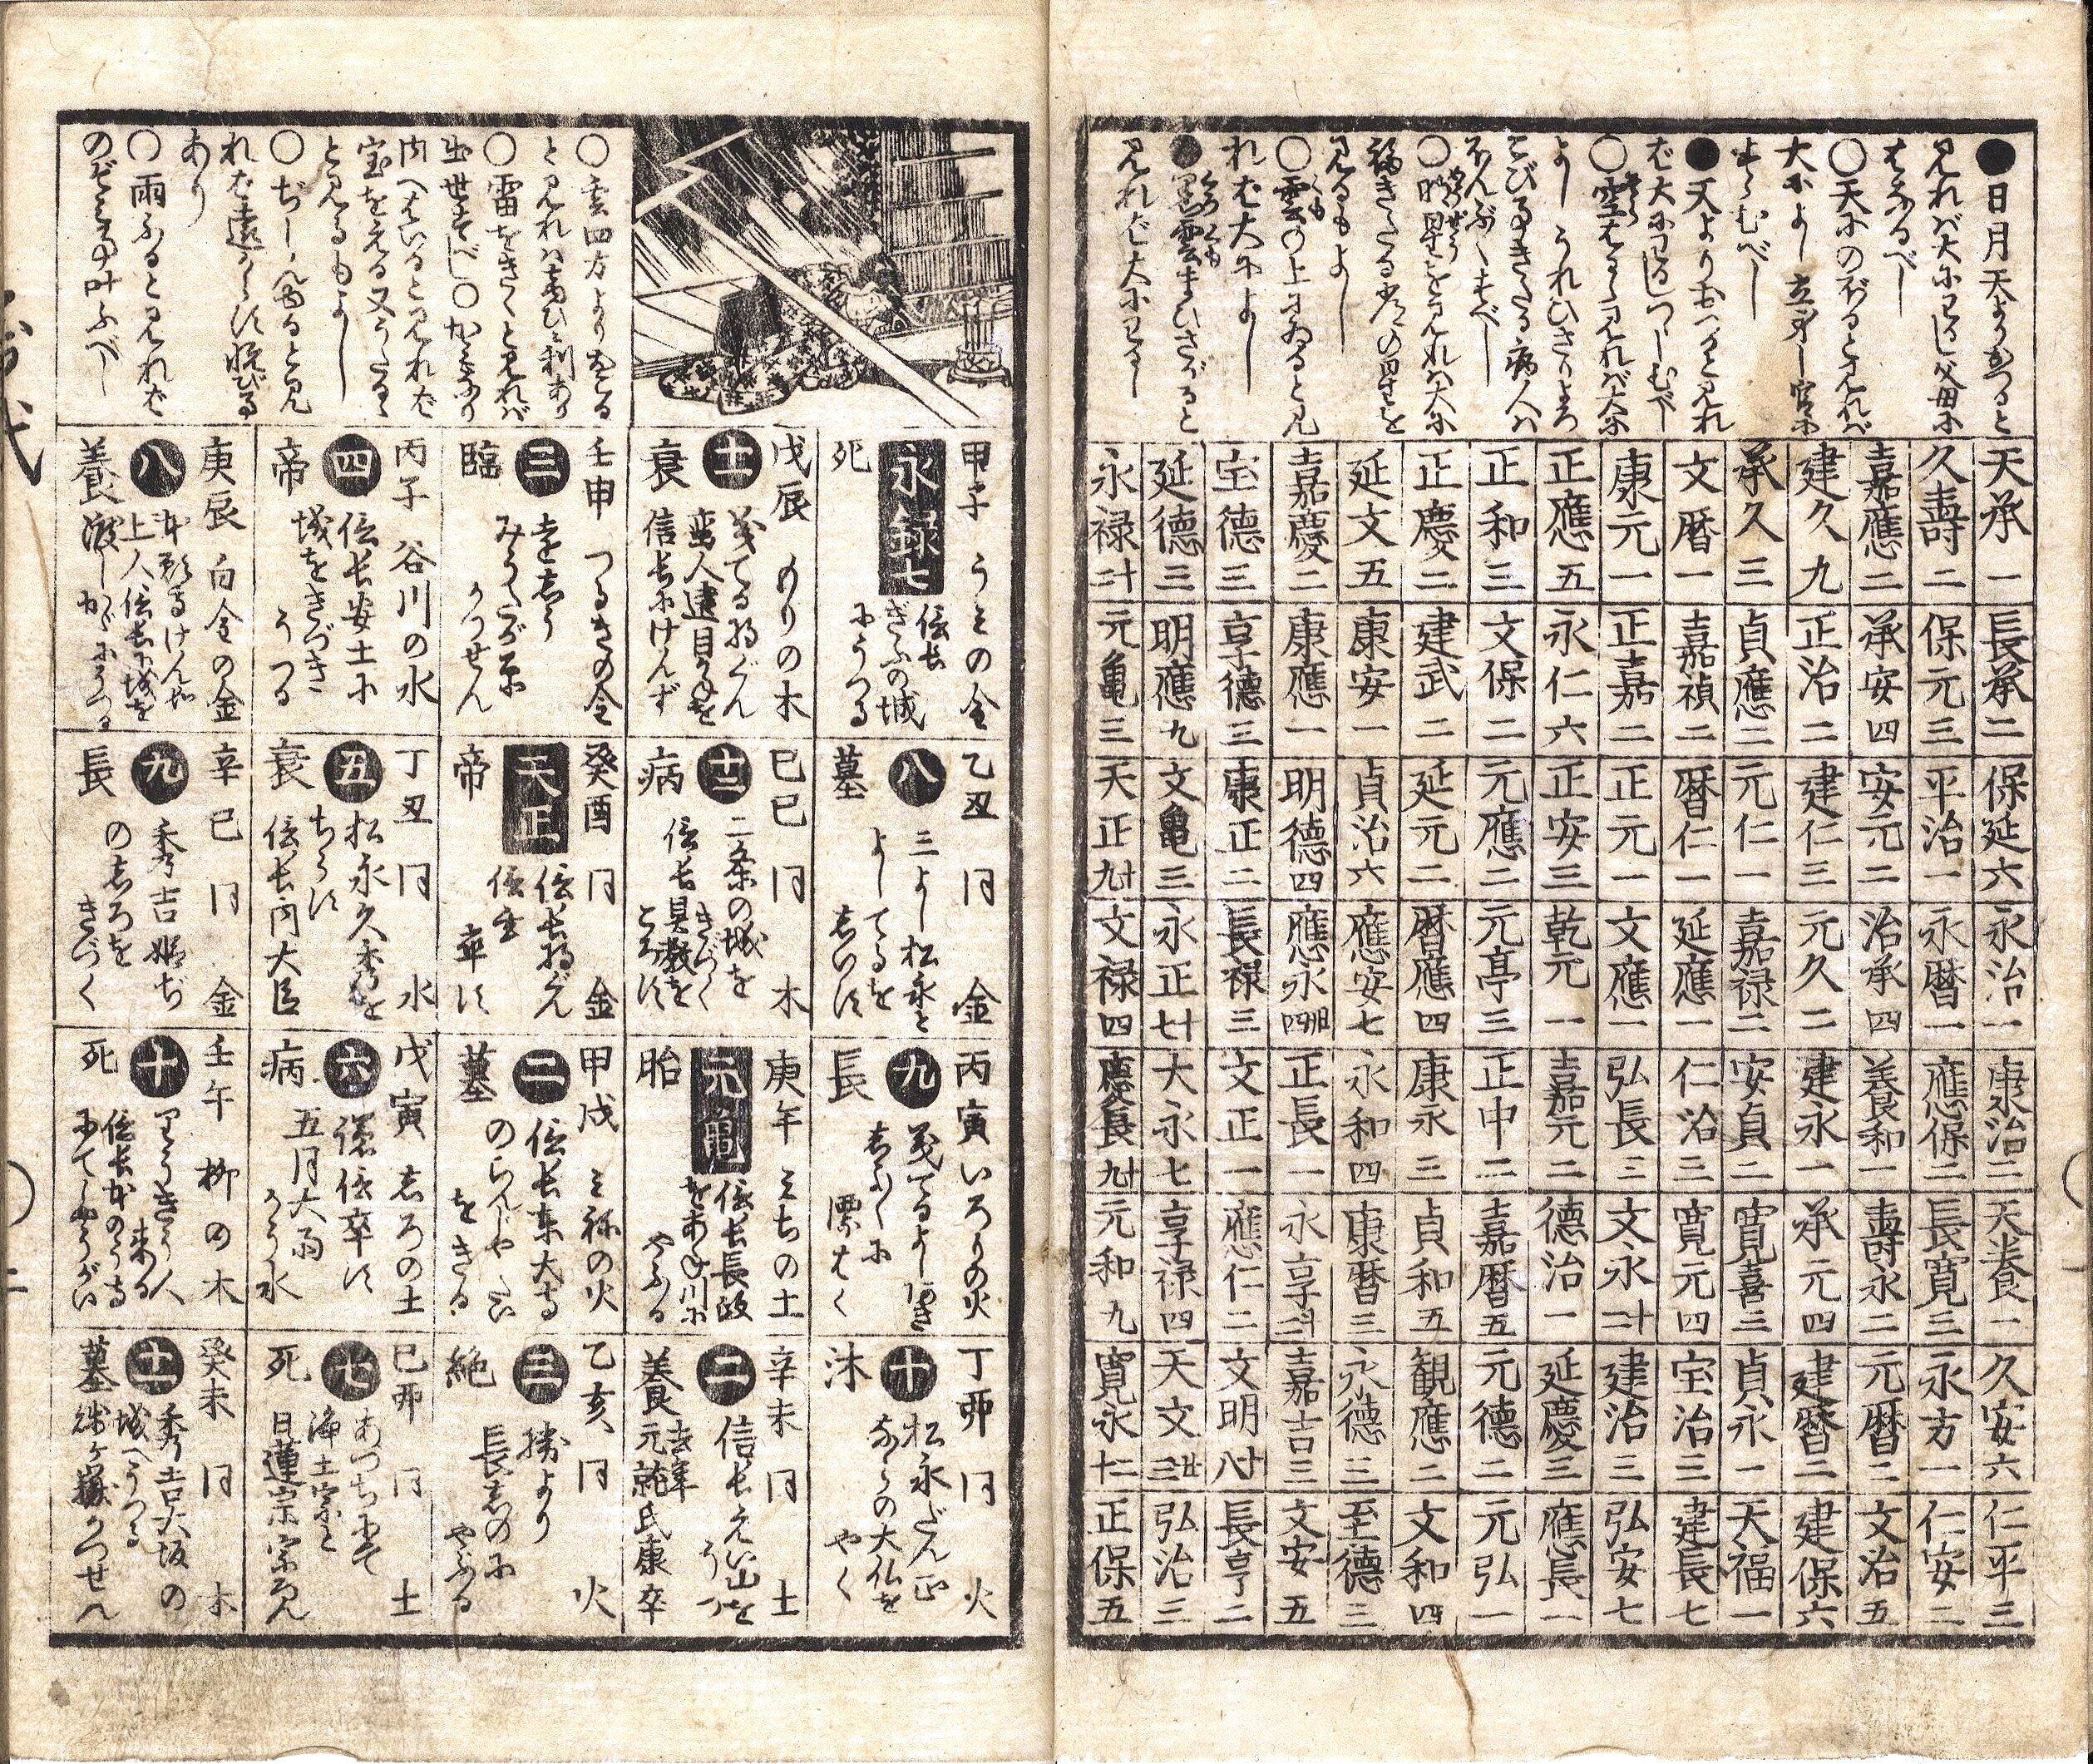 ●日月天よりおつると
見れバ大にわるし父母に
はなるべし
○天にのぼると見れバ
大によし立身し官に
すゝむべし
●天よりおつると見れ
ば大にわるしつゝしむべし
○空はるゝと見れバ大に
よしうれひさりよろ
こびきたる病人ハ
ほんぶくすべし
見るもよし
○雲の上にゐると見
れば大によし
●黒雲まひさがると
見れば大にわるし
天承 一
長承 二
保延 六
永治 一
康治 二
天養 一
久安 六
仁平 三
久壽 二
保元 三
平治 一
永暦 一
應保 二
長寛 三
永万 一
仁安 三
嘉應 二
承安 四
安元 二
治承 四
養和 一
壽永 二
元暦 二
文治 五
建久 九
正治 二
建仁 三
元久 二
建永 一
承元 四
建暦 二
建保 六
承久 三
貞應 二
元仁 一
嘉禄 二
安貞 二
寛喜 三
貞永 一
天福 一
文暦 一
嘉禎 二
暦仁 一
延應 一
仁治 三
寛元 四
宝治 三
建長 七
康元 一
正嘉 二
正元 一
文應 一
弘長 三
文永 十二
建治 三
弘安 七
正應 五
永仁 六
正安 三
乾元 一
嘉元 二
德治 一
延慶 三
應長 一
正和 三
文保 二
元應 二
元亭 三
正中 二
嘉暦 五
元德 二
元弘 一
正慶 二
建武 二
延元 二
暦應 四
康永 三
貞和 五
観應 二
文和 四
延文 五
康安 一
貞治 六
應安 七
永和 四
康暦 三
永德 三
至德 三
嘉慶 二
康應 一
明德 四
應永 卅四
正長 一
永享 十二
嘉吉 三
文安 五
宝德 三
享德 三
康正 二
長禄 三
文正 一
應仁 二
文明 十八
長亨 二
延德 三
明應 九
文亀 三
永正 十七
大永 七
享禄 四
天文 廿三
弘治 三
永禄 十二
元亀 三
天正 十九
文禄 四
慶長 十九
元和 九
寛永 十二
正保 五
○雲四方よりおこる
と見れハあきなひに利あり
○雷をきくと見れバ
出世すべし○かみなり
内へはいると見れば
宝をえる又うたるゝ
と見るもよし
○ぢしんゆると見
れば遠からず悦びる
あり
○雨ふると見れば
のぞミ事叶ふべし
甲子 うミの金
永録七
死
信長
ぎふの城
にうつる
乙丑 同 金
八
墓
三よし松永と
よしてるを
しいす
丙寅 いろりの火
九
長
丁卯 同 火
十
沐
松永だん正
ならの大仏を
やく
戊辰 のりの木
十一
衰
信長にけんず
己巳 同 木
十二
病
二条の城を
きづく
信長具教を
ころす
庚午 ミちの土
元亀
胎
信長長政
をあね川に
やぶる
辛未 同 土
二
養
信長えい山を
うつ
去年
元就氏康卒
壬申 つるぎの金
三
臨
かつせん
癸酉 同 金
天正
帝
信長将ぐん
信玄
卒す
甲戌 ミねの火
二
墓
信長東大寺
のらんじやたい
をきる
乙亥 同 火
三
絶
勝より
長しのに
やぶる
丙子 谷川の水
四
帝
信長安土に
城をきづき
うつる
丁丑 同 水
五
衰
松永久秀を
ちうす
信長内大臣
戊寅 しろの土
六
病
謙信卒す
五月大雨
かう水
己卯 同 土
七
死
あつちにて
浄土宗と
日蓮宗宗ろん
庚辰 白金の金
八
養
本願寺けんによ
上人信長に城を
渡し
辛巳 同 金
九
長
秀吉姫ぢ
のしろを
きづく
壬午 柳の木
十
死
りうきう人
来る
信長本のう寺
にてしやうがい
癸未 同 木
十一
墓
秀吉大坂の
城へうつる
しづヶ嶽かつせん